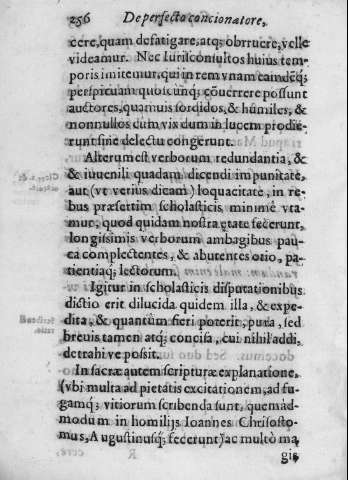 256 De perfecto concionatore,
cere, quam defatigare, atq; obrruere, velle
videamur. Nec Iurisconsultos huius tem-
poris imitemur, qui in rem vnam eamdēq;
perspicuam quoscunq; cōuerrere possunt
auctores, quamuis sordidos, & humiles, &
nonnullos cùm vix dum in lucem prodie-
runt sine delectu congerunt.
Alterum est verborum redundantia, &
& iuuenili quadam dicendi impunitate,
aut (vt veriùs dicam) loquacitate, in re-
bus præsertim scholasticis minimè vta-
mur, quod quidam nostra ętate fecerunt,
longissimis verborum ambagibus pau-
ca complectentes, & abutentes otio, pa-
tientiaq; lectorum.
Igitur in scholasticis disputationibus
dictio erit dilucida quidem illa, & expe-
dita, & quantùm fieri poterit, pura, sed
breuis tamen atq; concisa, cui nihil addi,
detrahi ve possit.
In sacræ autem scripturæ explanatione,
(vbi multa ad pietatis excitationem, ad fu-
gamq; vitiorum scribenda sunt, quemad-
modum in homilijs Ioannes Chrisosto-
mus, Augustinusq; fecerunt) ac multò ma
gis